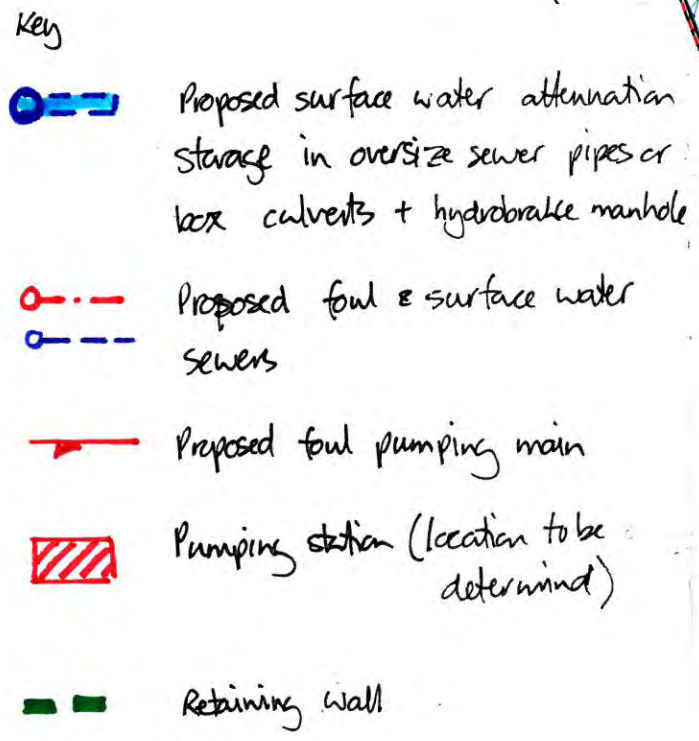 Key
Proposed surface water attenuation
storage in oversize sewer pipes or
box culverts + hydrobrake manhole
Proposed foul & surface water
sewers
Proposed foul pumping main
Pumping station (location to be
determind)
Retaining wall